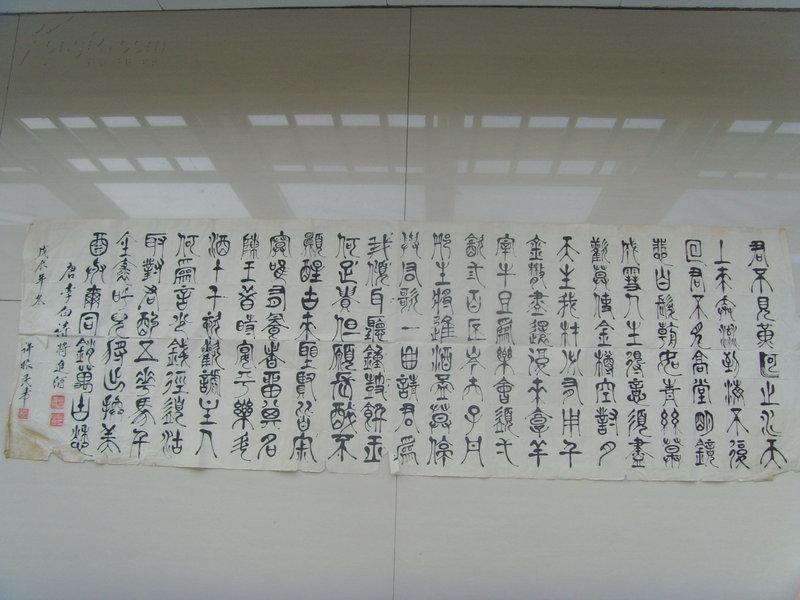 君不見黃河之水天
上來奔流到海不復
回君不見高堂明鏡
悲白髮朝如青絲暮
成雪人生得意須盡
歡莫使金樽空對月
天生我材必有用千
金散盡還復來烹羊
宰牛且爲樂會須一
飲三百杯岑夫子丹
邱生將進酒杯莫停
與君歌一曲請君爲
我傾耳聽鐘鼓饌玉
何足貴但願長醉不
願醒古來聖賢皆寂
寞唯有飲者留其名
陳王昔時宴平樂斗
酒十千恣歡謔主人
何爲言少錢徑須沽
取對君酌五花馬千
金裘呼兒將出換美
酒與爾同銷萬古愁
唐李白詩將進酒
戊辰年冬